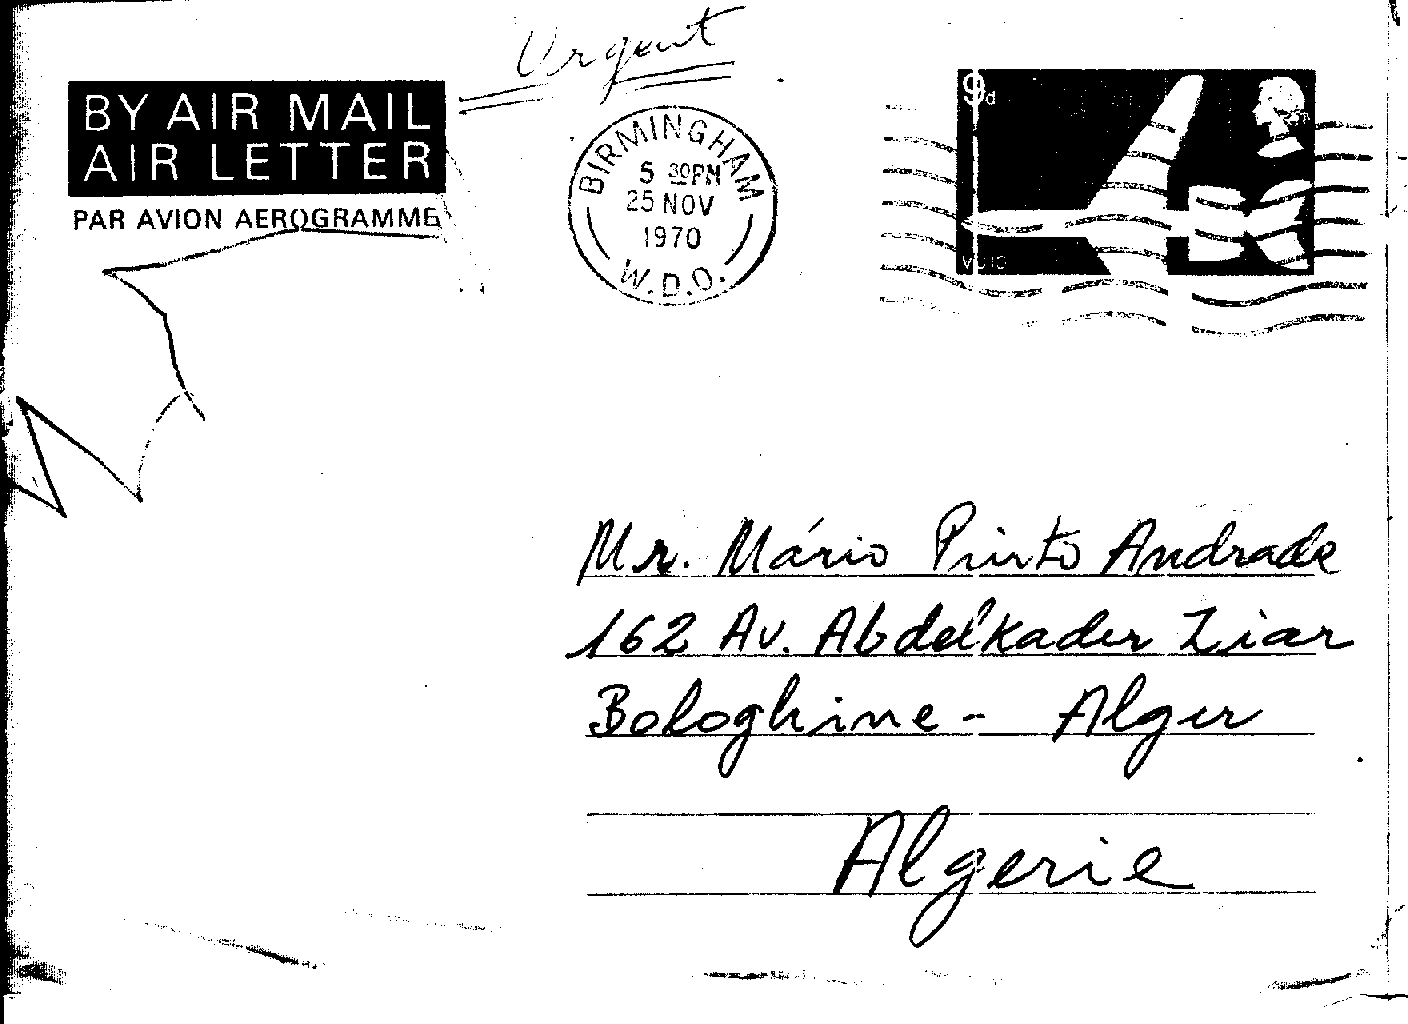 Urgent
BY AIR MAIL
AIR LETTER
PAR AVION AEROGRAMME
BIRMINGHAM
5 30PM
25 NOV
1970
W.D.O.
9d
Mr. Mário Pinto Andrade
162 Av. Abdelkader Ziar
Bologhine - Alger
Algerie